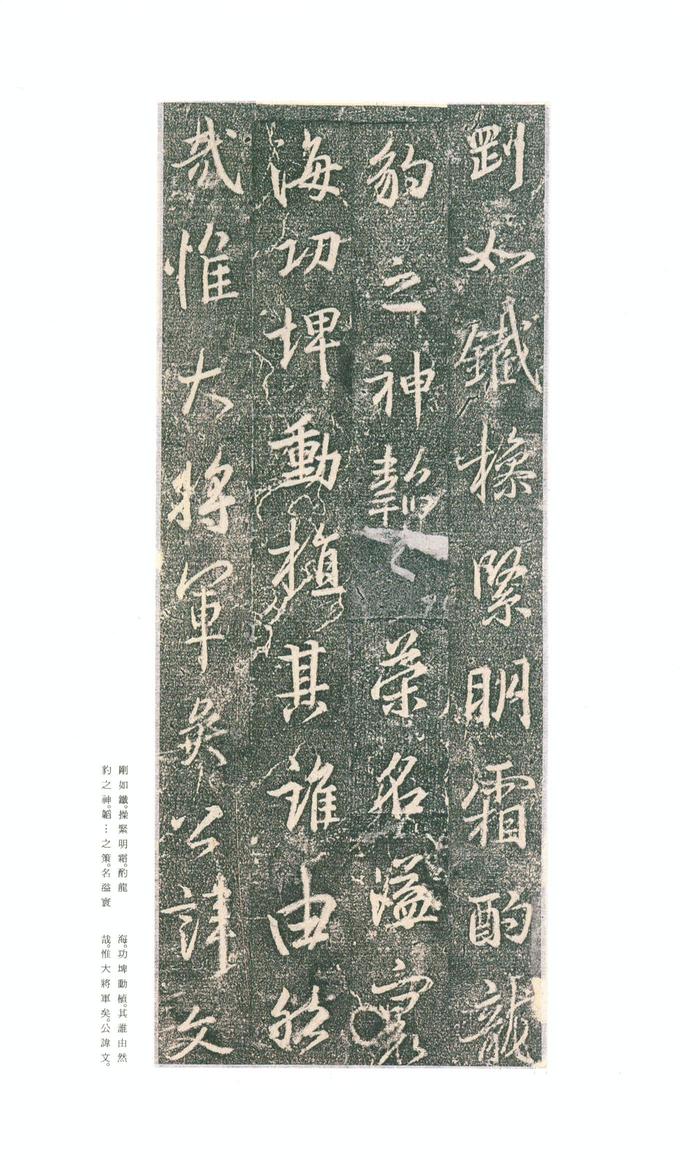 剛如鐵操緊明霜酌龍
豹之神韜之策名溢寰
海功埤動植其誰由然
哉惟大將軍矣公諱文
剛如鐵。操緊明霜。酌龍
豹之神。韜…之策。名溢寰
海。功埤動植。其誰由然
哉。惟大將軍矣。公諱文。